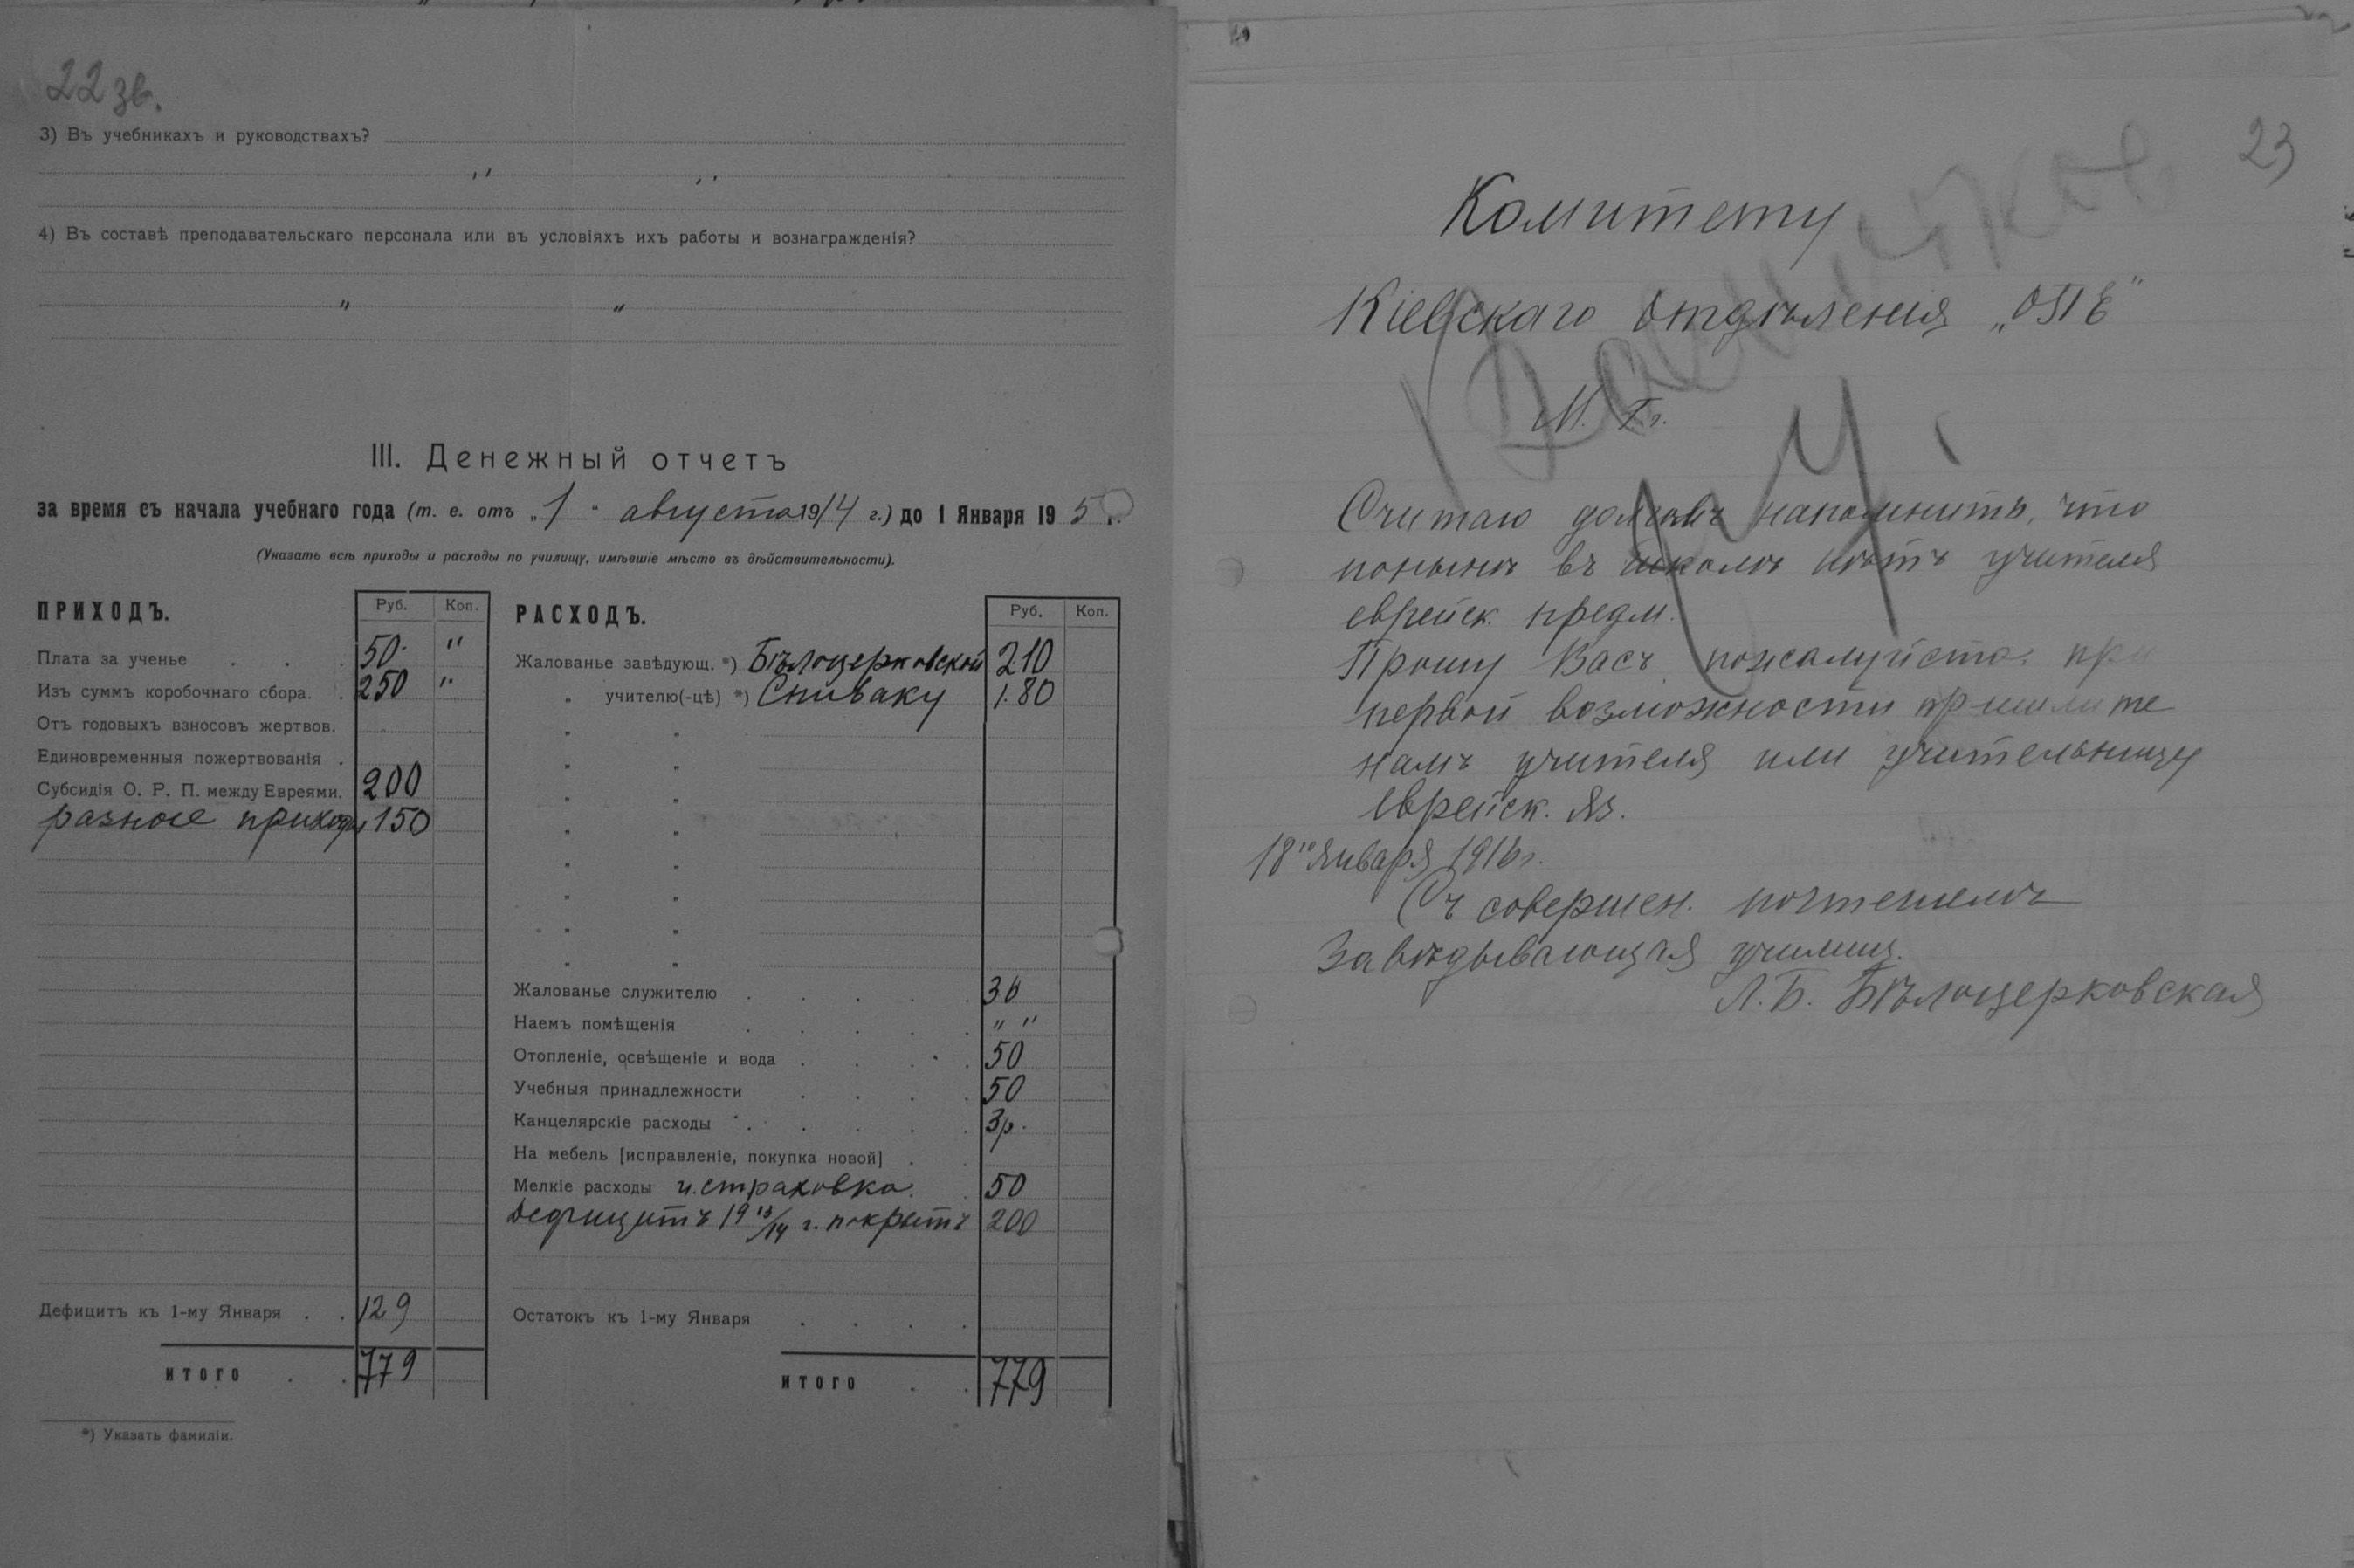 22 зв.
3) Въ учебникахъ и руководствахъ?
" "
4) Въ составѣ преподавательскаго персонала или въ условіяхъ ихъ работы и вознагражденія?
" "
III. Денежный отчетъ
за время съ начала учебнаго года (т. е. отъ „1" августа 1914 г.) до 1 Января 195 г.
(Указать всѣ приходы и расходы по училищу, имѣвшіе мѣсто въ дѣйствительности).
ПРИХОДЪ. Руб. Коп.
Плата за ученье . . . 50 "
Изъ суммъ коробочнаго сбора. . 250 "
Отъ годовыхъ взносовъ жертвов.
Единовременныя пожертвованія .
Субсидія О. Р. П. между Евреями. 200
разные приходы 150
Дефицитъ къ 1-му Января . . 129
ИТОГО . . 779
*) Указать фамиліи.
РАСХОДЪ. Руб. Коп.
Жалованье завѣдующ. *) Бѣлоцерковской 210
„ учителю(-цѣ) *) Спиваку 180
Жалованье служителю . . . . . 36
Наемъ помѣщенія . . . . . " "
Отопленіе, освѣщеніе и вода . . . . 50
Учебныя принадлежности . . . . 50
Канцелярскіе расходы . . . . . 3р.
На мебель [исправленіе, покупка новой] . .
Мелкіе расходы и страховка. . 50
Дефицитъ 1913/14 г. покрытъ 200
Остатокъ къ 1-му Января . . . .
ИТОГО . . 779
23
Комитету
Кіевскаго Отдѣленія „ОПЕ"
М. Гг.
Считаю долгомъ напомнить, что
понынѣ въ школѣ нѣтъ учителя
еврейск. предм.
Прошу Васъ, пожалуйста, при
первой возможности пришлите
намъ учителя или учительницу
еврейск. яз.
18го Января 1916 г.
Съ совершен. почтеніемъ
Завѣдывающая училищ.
Л. Б. Бѣлоцерковская